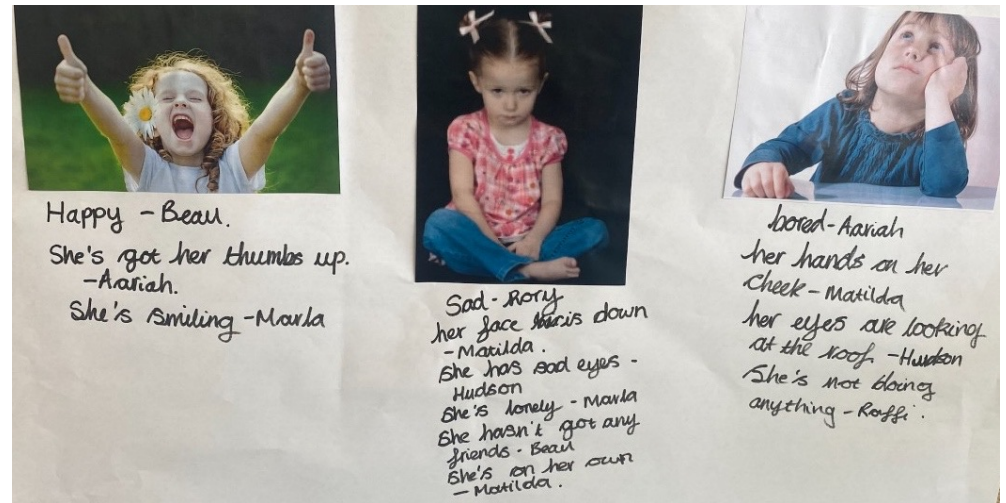 Happy - Beau.
She's got her thumbs up.
- Aariah.
She's smiling - Marla
Sad - Rory
her face is down
- Matilda.
She has sad eyes -
Hudson
She's lonely - Marla
She hasn't got any
friends - Beau
She's on her own
- Matilda.
bored - Aariah
her hands on her
cheek - Matilda
her eyes are looking
at the roof - Hudson
She's not doing
anything - Raffi.